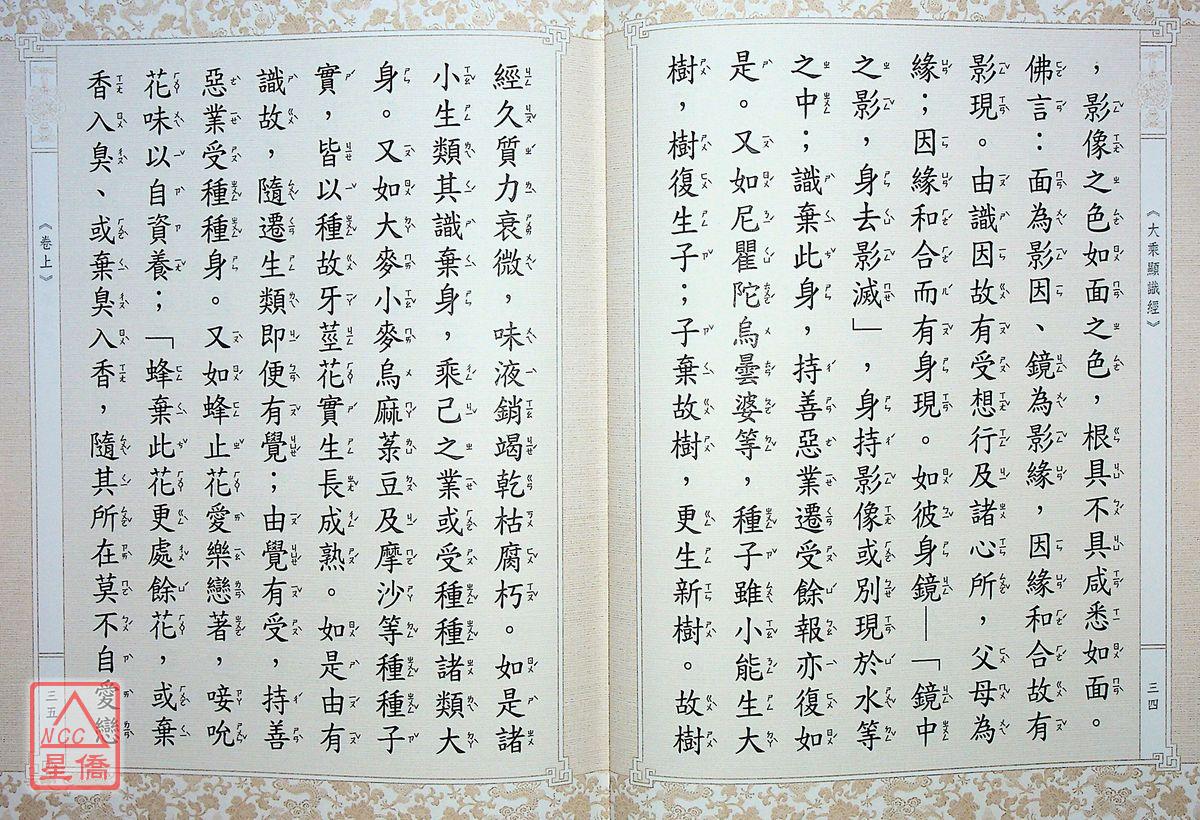 《大乘顯識經》
三四
，影像之色如面之色，根具不具咸悉如面。
佛言：面為影因、鏡為影緣，因緣和合故有
影現。由識因故有受想行及諸心所，父母為
緣；因緣和合而有身現。如彼身鏡—「鏡中
之影，身去影滅」，身持影像或別現於水等
之中；識棄此身，持善惡業遷受餘報亦復如
是。又如尼瞿陀烏曇婆等，種子雖小能生大
樹，樹復生子；子棄故樹，更生新樹。故樹
經久質力衰微，味液銷竭乾枯腐朽。如是諸
小生類其識棄身，乘己之業或受種種諸類大
身。又如大麥小麥烏麻菉豆及摩沙等種種子
實，皆以種故牙莖花實生長成熟。如是由有
識故，隨遷生類即便有覺；由覺有受，持善
惡業受種種身。又如蜂止花愛樂戀著，唼吮
花味以自資養；「蜂棄此花更處餘花，或棄
香入臭、或棄臭入香，隨其所在莫不自愛戀
《卷上》
三五
NCC
星僑